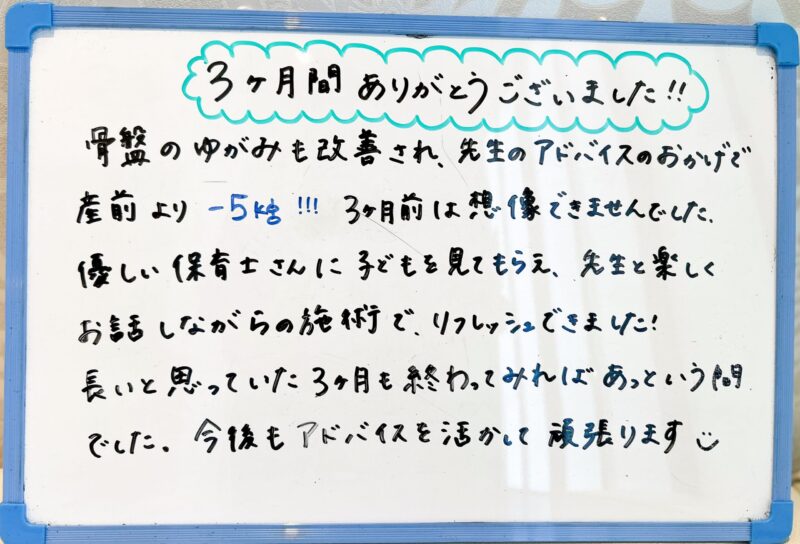 3ヶ月間ありがとうございました!!
骨盤のゆがみも改善され、先生のアドバイスのおかげで
産前より -5kg!!! 3ヶ月前は想像できませんでした。
優しい保育士さんに子どもを見てもらえ、先生と楽しく
お話しながらの施術で、リフレッシュできました!
長いと思っていた3ヶ月も終わってみればあっという間
でした。今後もアドバイスを活かして頑張ります